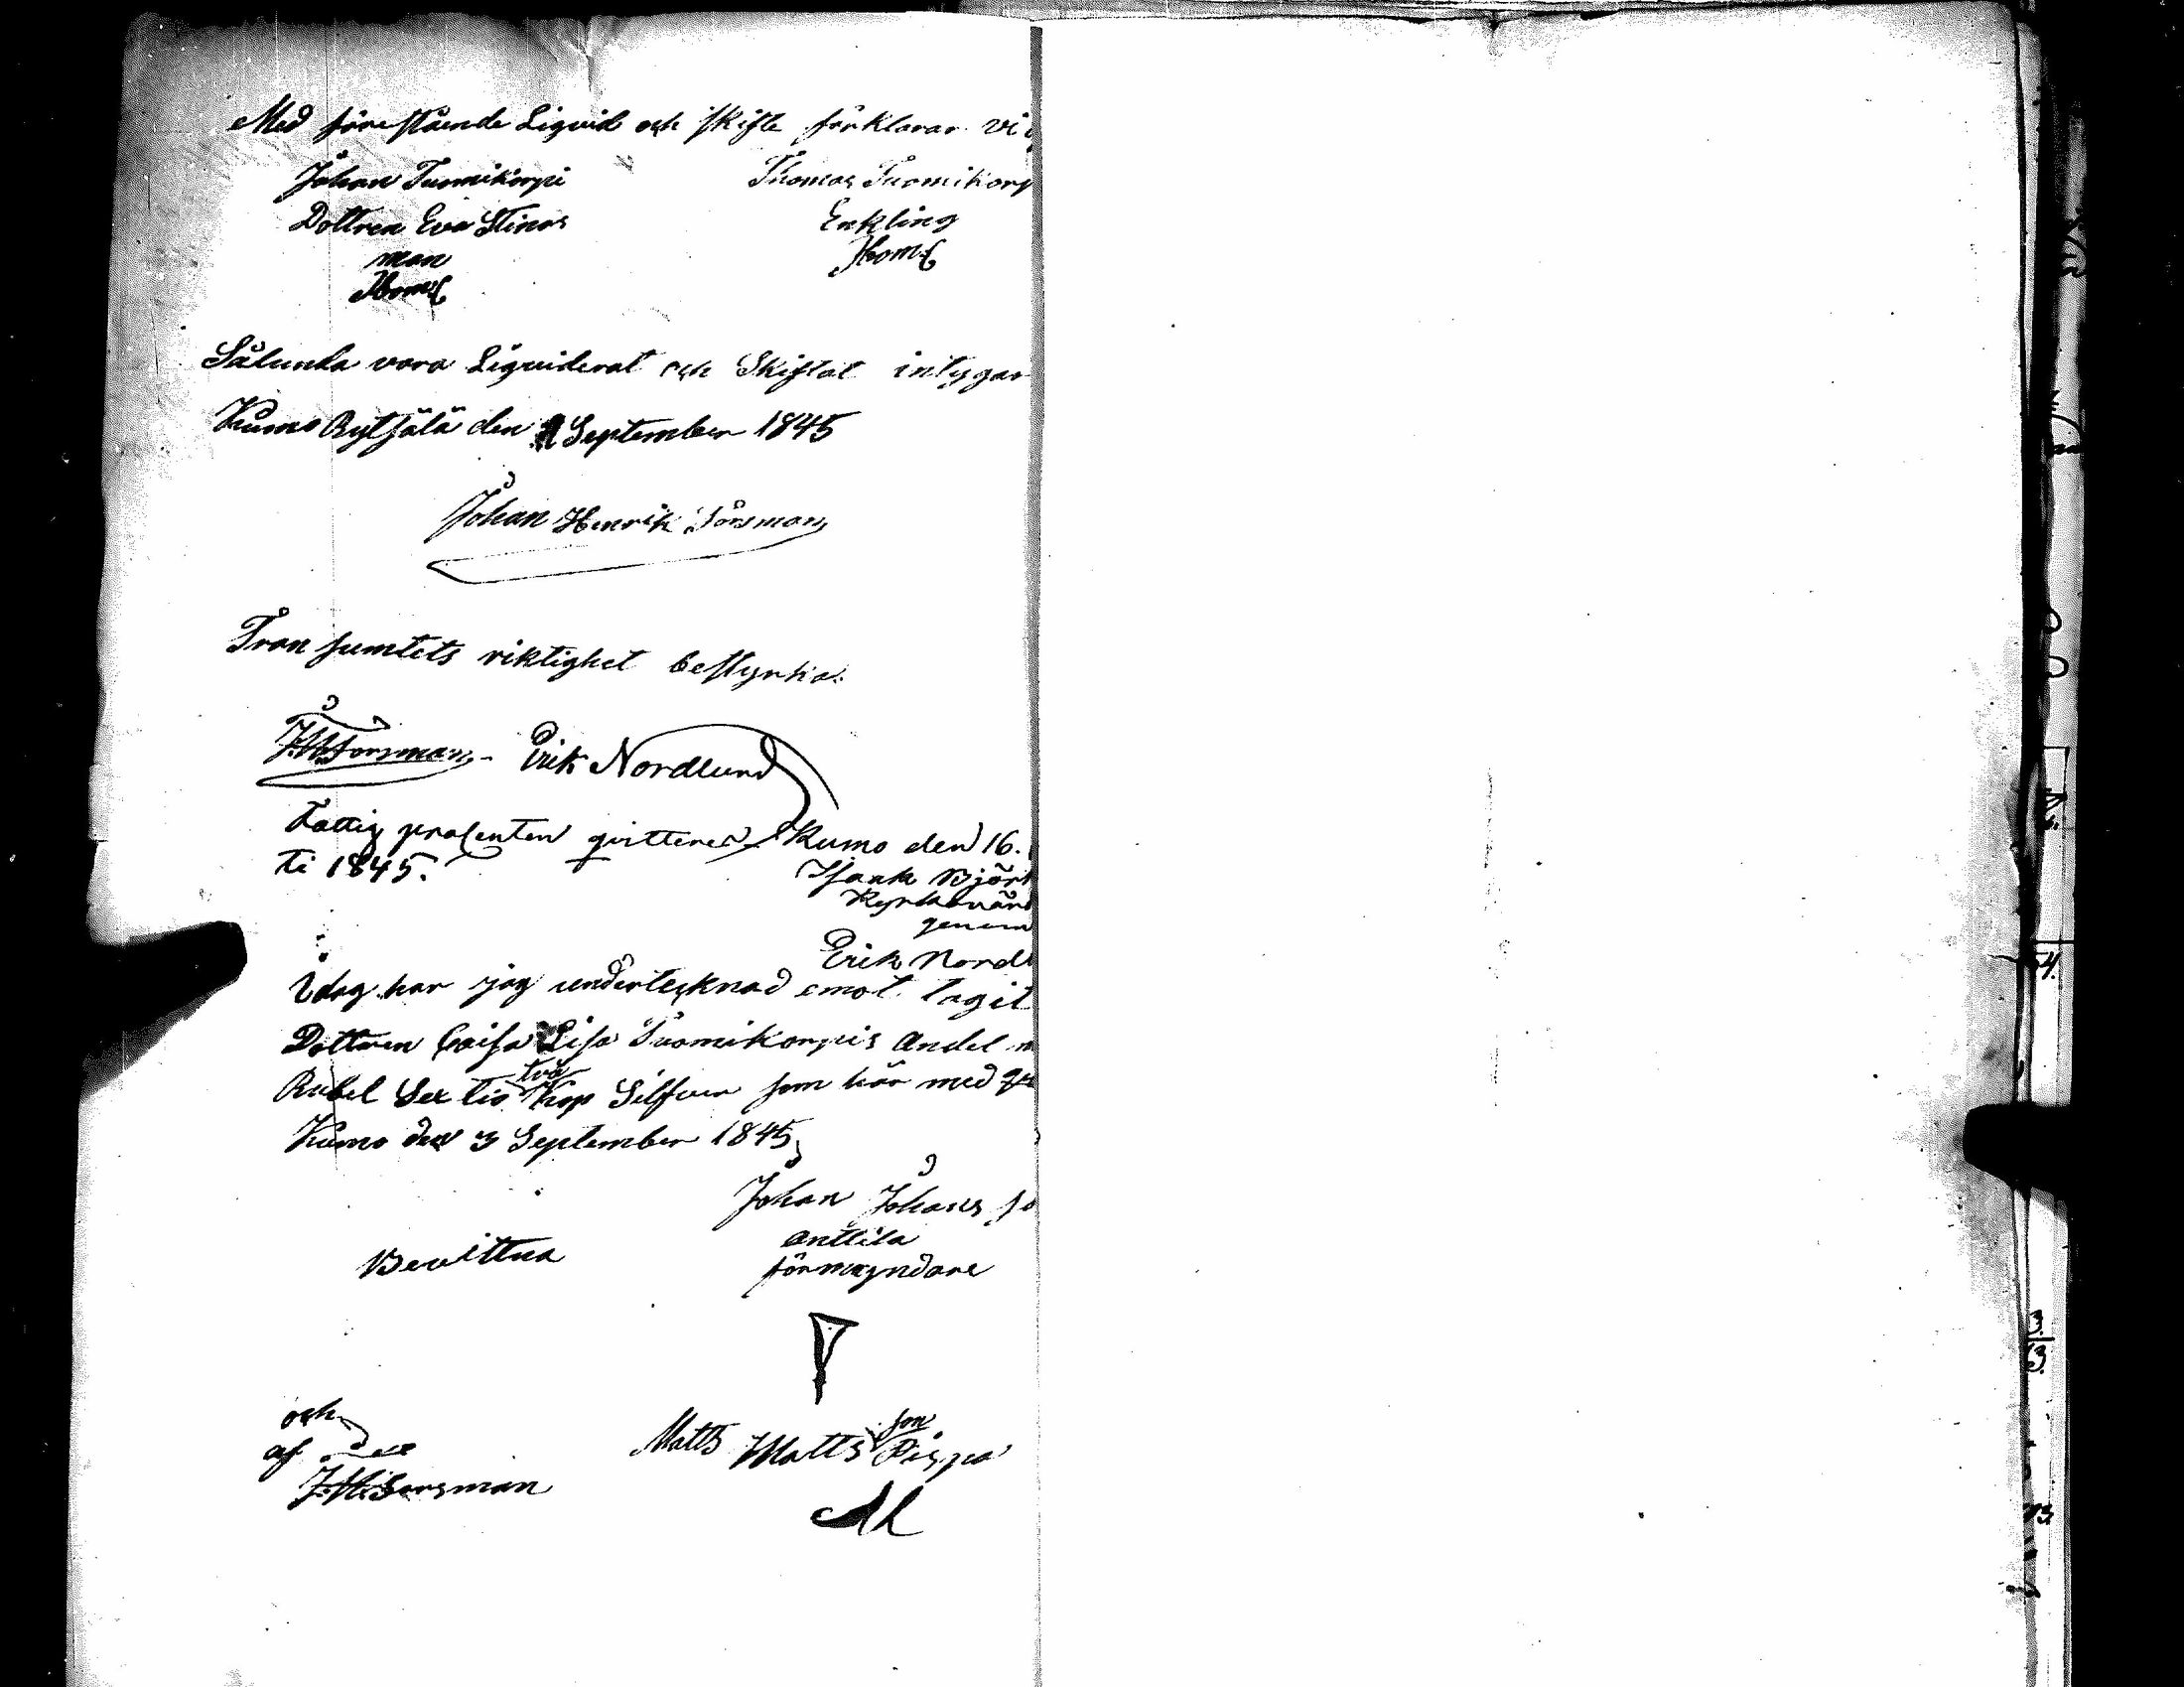 Med förestående Liqvid och skifte förklarar vi
Johan Tuomikorpi Thomas Tuomikorp
Dottren Eva Stinas Enkling
man
Sålunda vara Liqviderat och Skiftat intygar
Kumo Rytsälä den September 1845
Johan Henrik Forsman
Transumtets riktighet bestyrka:
J.H. Forsman. Erik Nordlund
Fattig procenten qvitteras Kumo den 16.
ti 1845. Isaak Björk
Kyrkovärd
genom
Erik Nordl
Idag har jag undertecknad emot tagit
Dottren Caisa Lisa Tuomikorpis Andel
Rubel Sextio två Kop Silfver som här med
Kumo den 3 September 1845
Johan Johans so
Bevittna Anttila
förmyndare
och
af
J.H. Forsman Matts Mattsson Pispa